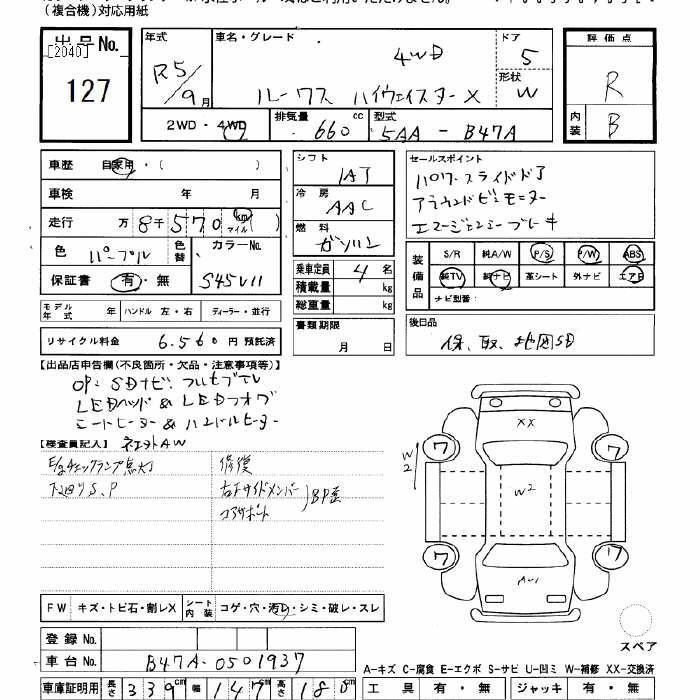 (複合機)対応用紙
出品No. [2040] 127
年式 R5/9月
車名・グレード 4WD
ルークス ハイウェイスターX
ドア 5
形状 W
評価点 R
内装 B
2WD・4WD 排気量 660cc 型式 5AA-B47A
車歴 自家用・( )
車検 年 月
走行 万8千570 km マイル( )
色 パープル 色替 カラーNo. S45V11
保証書 有・無
シフト IAT
冷房 AAC
燃料 ガソリン
乗車定員 4名
積載量 kg
総重量 kg
書類期限 月 日
セールスポイント
パワースライドドア
アラウンドビューモニター
エマージェンシーブレーキ
装備品 S/R 純A/W P/S P/W ABS
純TV 純ナビ 革シート 外ナビ エアB
ナビ型番:
モデル年式 年 ハンドル 左・右 ディーラー・並行
リサイクル料金 6.560円預託済
後日品
保、取、地図SD
【出品店申告欄(不良箇所・欠品・注意事項等)】
OP:SDナビ フルセグTV
LEDヘッド & LEDフォグ
シートヒーター & ハンドルヒーター
【検査員記入】
E/gチェックランプ点灯
下回りS.P
修復
右Fサイドメンバー
コアサポート
BP歪
XX
W2
W2
ワ
ワ
ワ
ワ
FW キズ・トビ石・割レX シート内装 コゲ・穴・汚レ・シミ・破レ・スレ
登録No.
車台No. B47A-0501937
スペア
A-キズ C-腐食 E-エクボ S-サビ U-凹ミ W-補修 XX-交換済
車庫証明用 長さ 339cm 幅 147cm 高さ 180cm
工具 有・無 ジャッキ 有・無